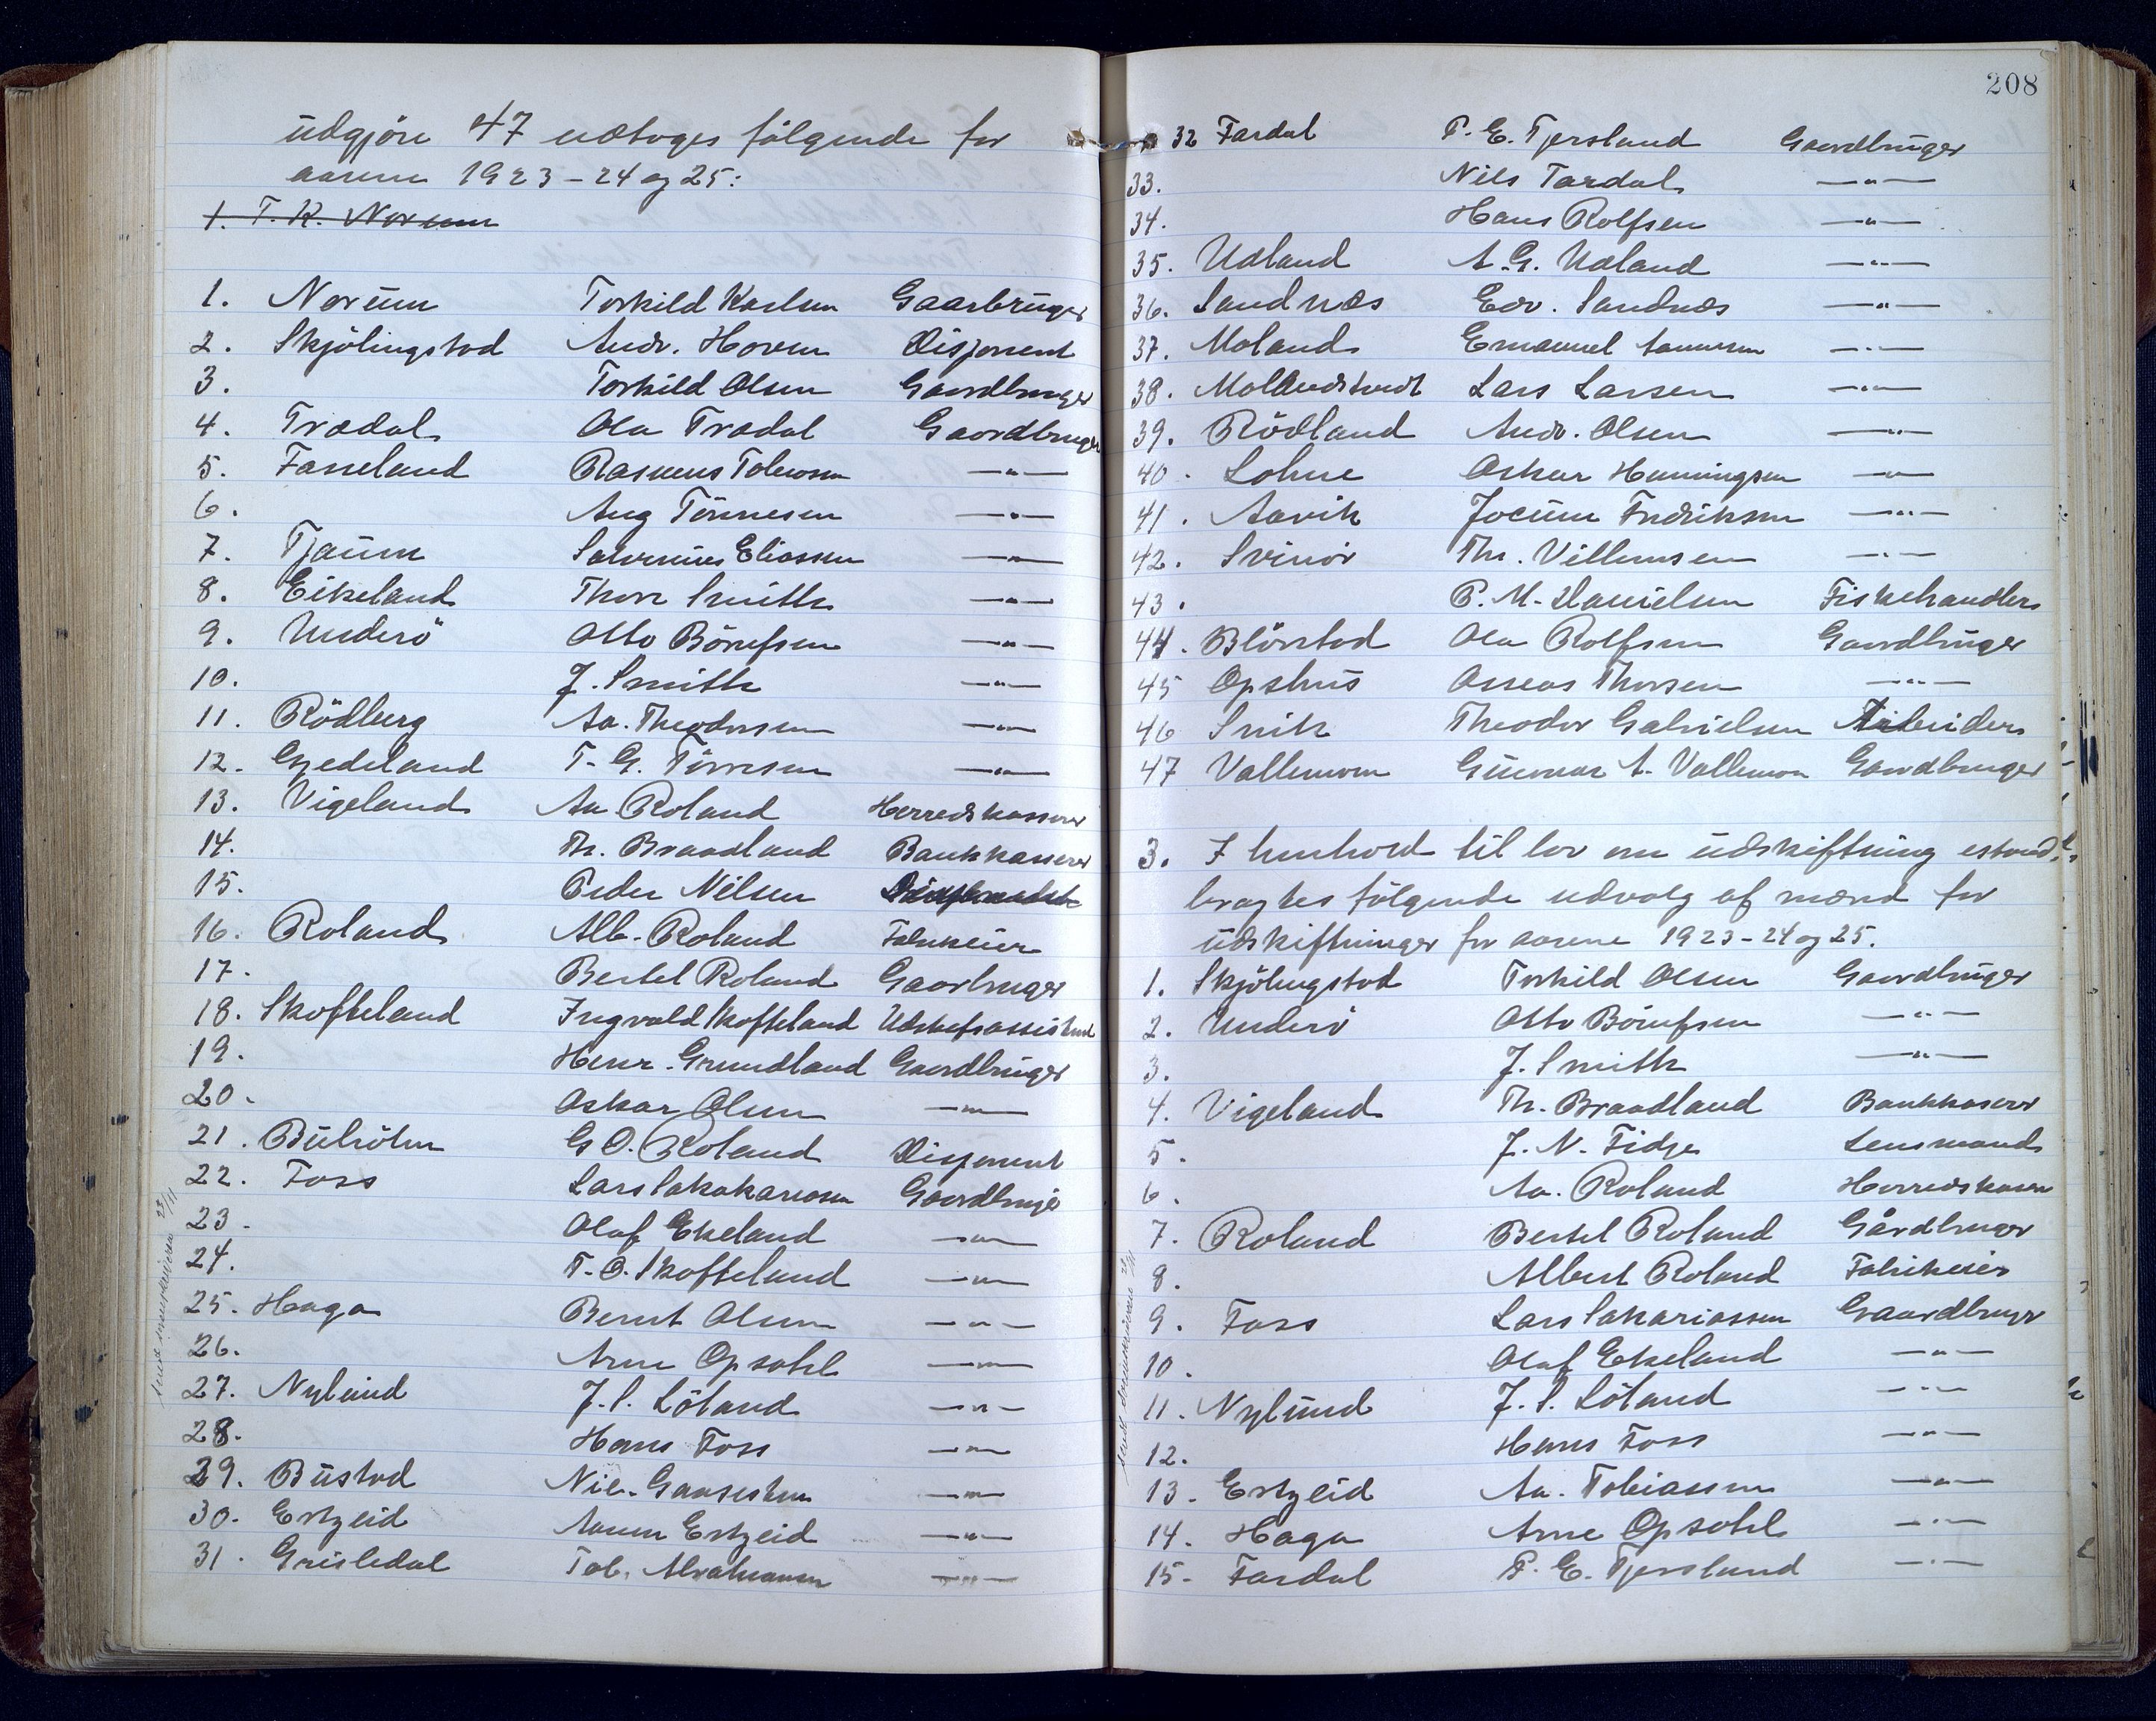 udgjöre 47 uttoges följgende for
aarene 1923-24 og 25:
1. T. K. Norum
1. Norum Torkild Karlsen Gaarbruger
2. Skjölingstad Andr. Hoven Disponent
3. Torkild Olsen Gaardbruger
4. Trædal Ola Trædal Gaardbruger
5. Fasseland Rasmus Tobiasen —"—
6. Aug Tönnesen —"—
7. Tjaum Salvesen Eliassen —"—
8. Eikeland Thore Smith —"—
9. Underö Otto Börufsen —"—
10. J. Smith —"—
11. Rödberg Aa. Theodorsen —"—
12. Gjedeland T. G. Törresen —"—
13. Vigeland Aa Roland Herredskasserer
14. Th. Braadland Bankkasserer
15. Peder Nilsen
16. Roland Alb. Roland Fabrikeier
17. Bertel Roland Gaarbruger
18. Skofteland Ingvald Skofteland Udskifsassistent
19. Henr. Grundland Gaardbruger
20. Oskar Olsen —"—
21. Buhölm G. O. Roland Disponent
22. Foss Lars Sakakariasen Gaardbruge
23. Olaf Ekeland —"—
24. T. O. Skofteland —"—
25. Haga Bernt Olsen —"—
26. Arne Opsahl —"—
27. Nylund J. S. Löland —"—
28. Hans Foss —"—
29. Bustad Nil. Gaasestein —"—
30. Ertzeid Aanen Ertzeid —"—
31. Grisledal Tob. Abrahamsen —"—
208
32 Fardal P. E. Tjersland Gaardbruger
33. Nils Tardal —"—
34. Hans Rolfsen —"—
35. Udland A. G. Udland —"—
36. Sandnæs Edv. Sandnæs —"—
37. Moland Emanuel Aanensen —"—
38. Molandstveit Lars Larsen —"—
39. Rödland Andr. Olsen —"—
40. Lohne Oskar Henningsen —"—
41. Aavik Jocum Fredriksen —"—
42. Svinör Th. Villumsen —"—
43. P. M. Danielsen Fiskehandler
44. Blörstad Ola Rolfsen Gaardbruger
45 Opshus Asseas Thorsen —"—
46 Snik Theodor Gabrielsen Arbeider
47 Vallemoen Gunnar A. Vallemoen Gaardbruger
3. I henhold til lov om udskiftning istand-
bragtes følgende udvalg af mænd for
udskiftninger for aarene 1923-24 og 25.
1. Skjölingstad Torkild Olsen Gaardbruger
2. Underö Otto Börufsen —"—
3. J. Smith —"—
4. Vigeland Th. Braadland Bankkaserer
5. J. N. Fidje Lensmand
6. Aa. Roland Herredskaser
7. Roland Bertel Roland Gårdbruger
8. Albert Roland Fabrikeier
9. Foss Lars Sakariassen Gaardbruger
10. Olaf Ekeland —"—
11. Nylund J. S. Löland —"—
12. Hans Foss —"—
13. Ertzeid Aa. Tobiassen —"—
14. Haga Arne Opsahl —"—
15. Fardal P. E. Tjersland —"—